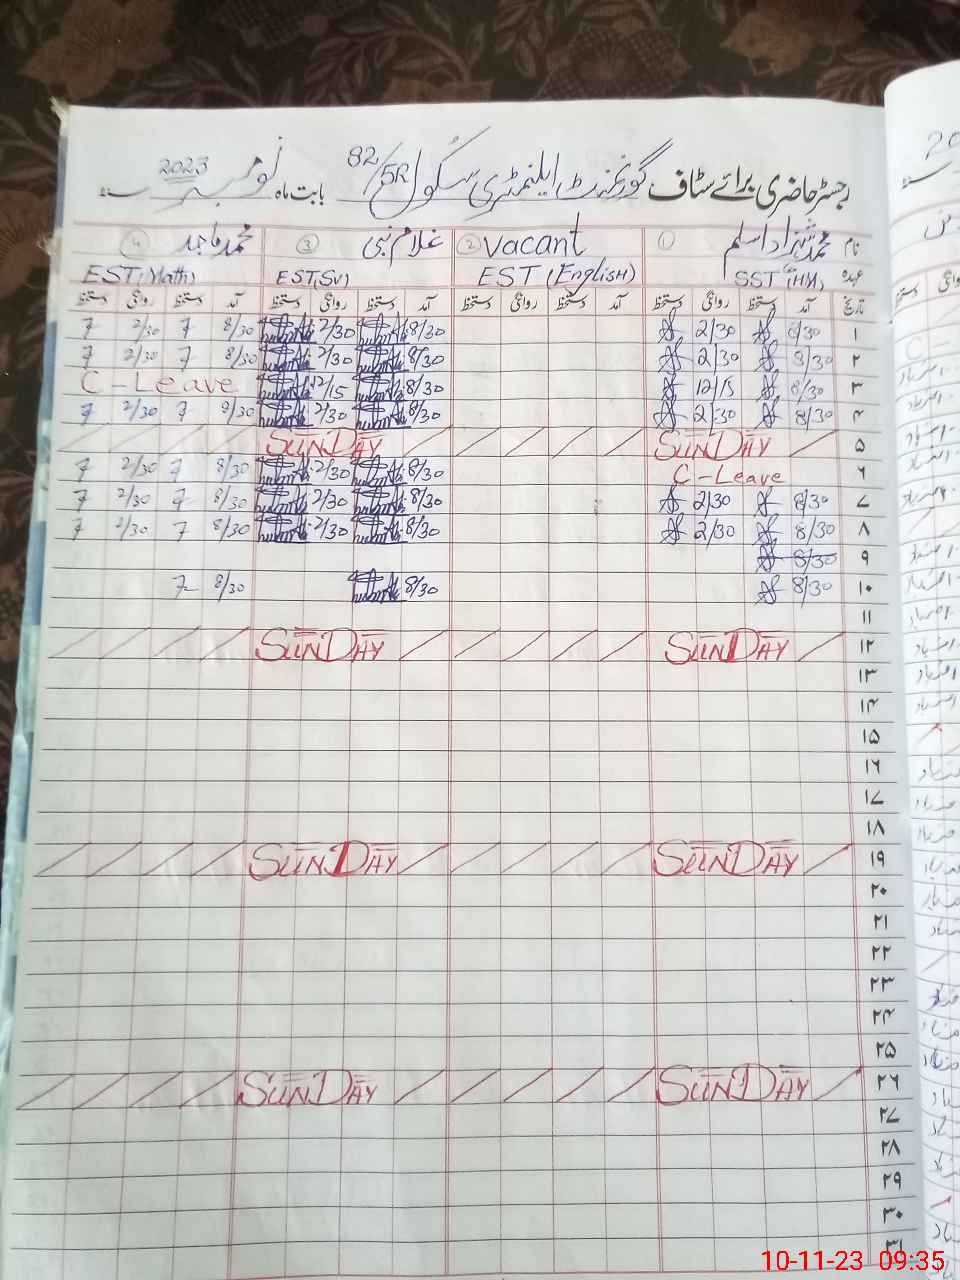 رجسٹر حاضری برائے سٹاف گورنمنٹ ایلیمنٹری سکول 82/5R بابت ماہ نومبر 2023
نام محمد شہزاد اسلم ① vacant ② غلام نبی ③ محمد ماجد ④
عہدہ SST (HM) EST (English) EST(SV) EST(Math)
تاریخ آمد دستخط روانگی دستخط آمد دستخط روانگی دستخط آمد دستخط روانگی دستخط آمد دستخط روانگی دستخط
۱ 8/30 2/30 8/30 2/30 8/30 2/30
۲ 8/30 2/30 8/30 2/30 8/30 2/30
۳ 8/30 12/15 8/30 12/15 C-Leave
۴ 8/30 2/30 8/30 2/30 8/30 2/30
۵ SUNDAY SUNDAY
۶ C-Leave 8/30 2/30 8/30 2/30
۷ 8/30 2/30 8/30 2/30 8/30 2/30
۸ 8/30 2/30 8/30 2/30 8/30 2/30
۹ 8/30
۱۰ 8/30 8/30 8/30
۱۱
۱۲ SUNDAY SUNDAY
۱۳
۱۴
۱۵
۱۶
۱۷
۱۸
۱۹ SUNDAY SUNDAY
۲۰
۲۱
۲۲
۲۳
۲۴
۲۵
۲۶ SUNDAY SUNDAY
۲۷
۲۸
۲۹
۳۰
۳۱
10-11-23 09:35